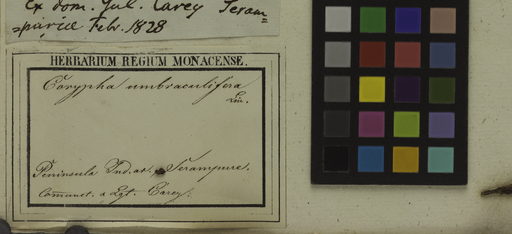 Ex dom. Gul. Carey Seram=
=purice Febr. 1828
HERBARIUM REGIUM MONACENSE.
Corypha umbraculifera
Lin.
Peninsula Ind. or. Serampure.
Comunct. a Rgt. Carey.